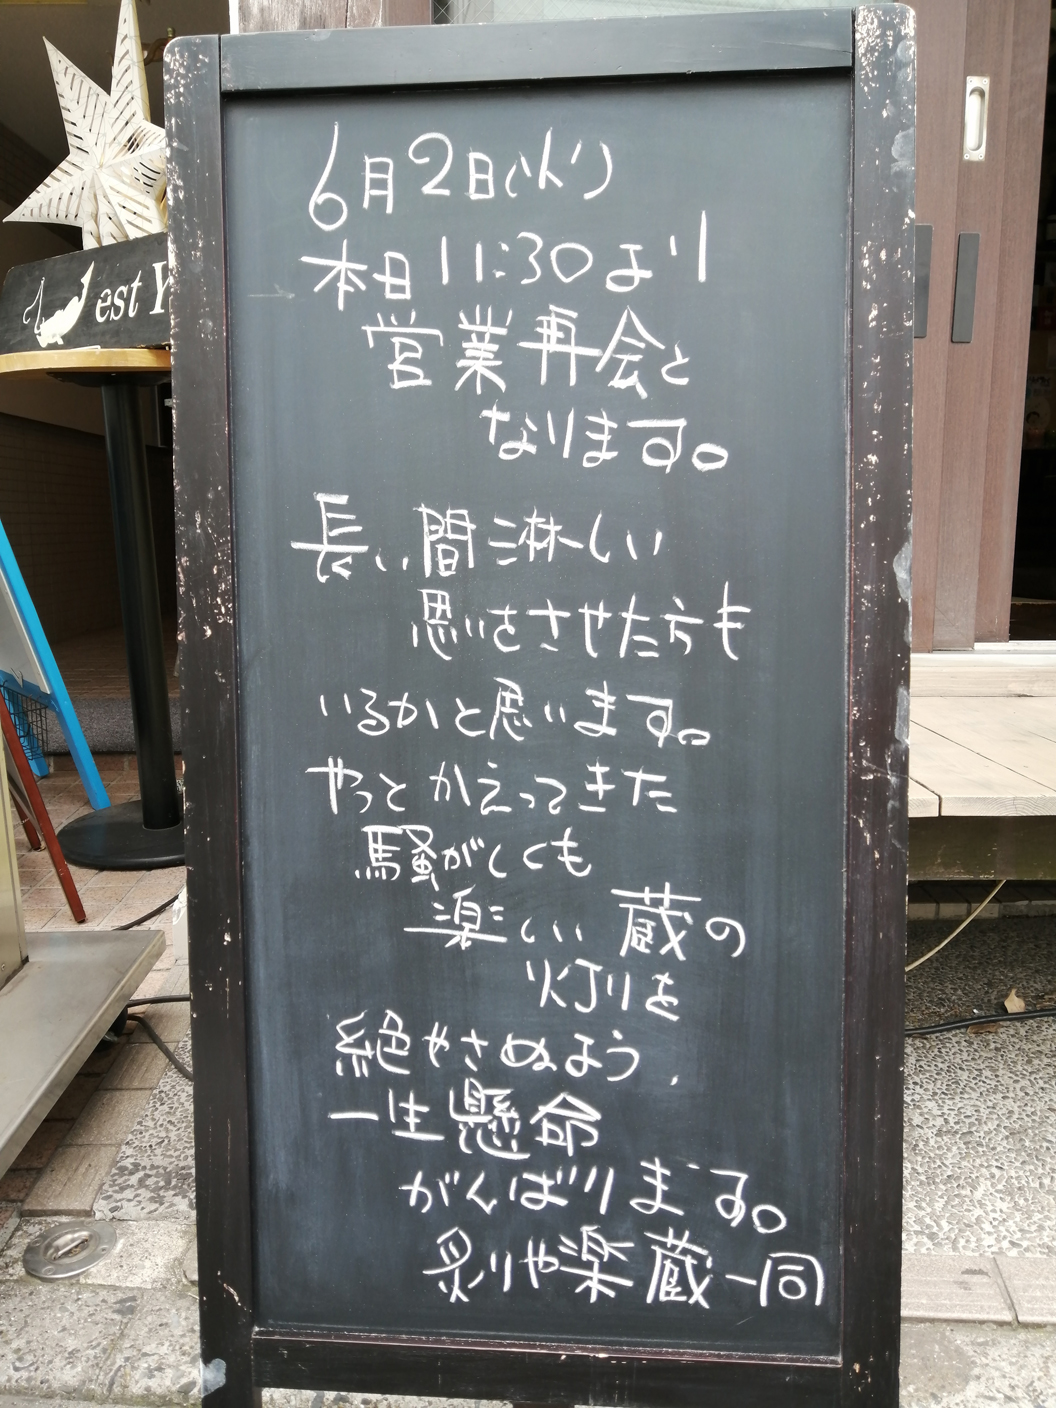 6月2日(火)
本日11:30より
営業再会と
なります。
長い間淋しい
思いをさせた方も
いるかと思います。
やっとかえってきた
騒がしくも
楽しい蔵の
灯りを
絶やさぬよう、
一生懸命
がんばります。
炙りや楽蔵一同
est